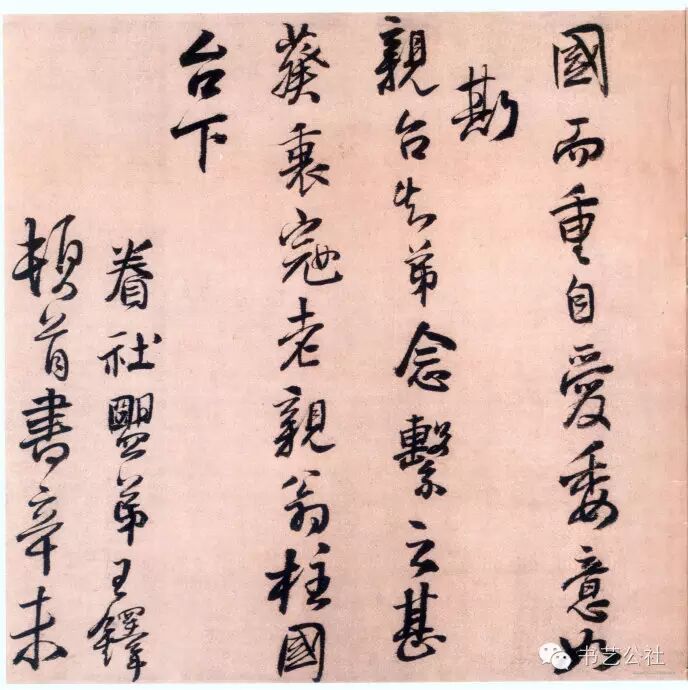 國而重自愛委意如
斯
親台知弟念繫云甚
葵衷寇老親翁柱國
台下
眷社盟弟王鐸
頓首書辛未
书艺公社